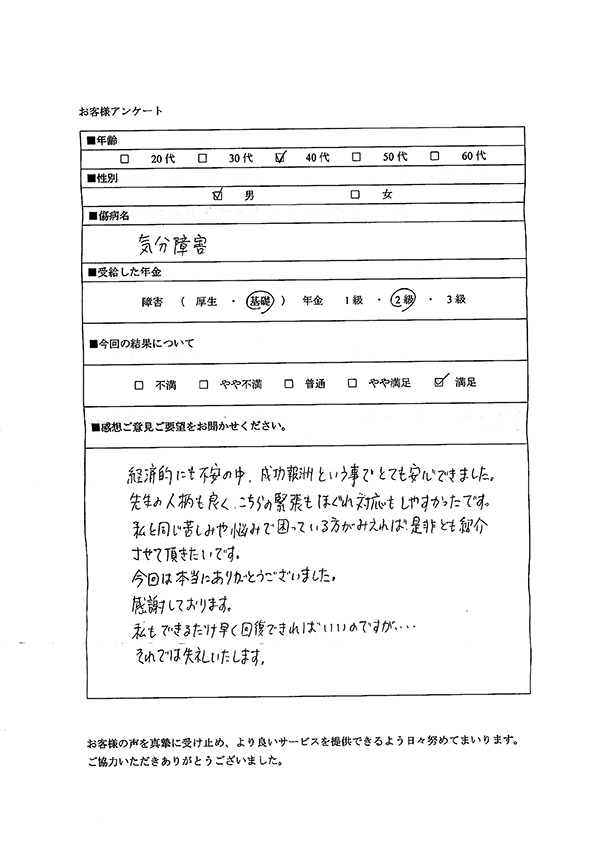 お客様アンケート
■年齢
□ 20代 □ 30代 ☑ 40代 □ 50代 □ 60代
■性別
☑ 男 □ 女
■傷病名
気分障害
■受給した年金
障害 ( 厚生 ・ 基礎 ) 年金 1級 ・ 2級 ・ 3級
■今回の結果について
□ 不満 □ やや不満 □ 普通 □ やや満足 ☑ 満足
■感想ご意見ご要望をお聞かせください。
経済的にも不安の中、成功報洲という事でとても安心できました。
先生の人柄も良く、こちらの緊張もほぐれ対応もしやすかったです。
私と同じ苦しみや悩みで困っている方がみえれば是非とも紹介
させて頂きたいです。
今回は本当にありがとうございました。
感謝しております。
私もできるだけ早く回復できればいいのですが、・・・
それでは失礼いたします。
お客様の声を真摯に受け止め、より良いサービスを提供できるよう日々努めてまいります。
ご協力いただきありがとうございました。